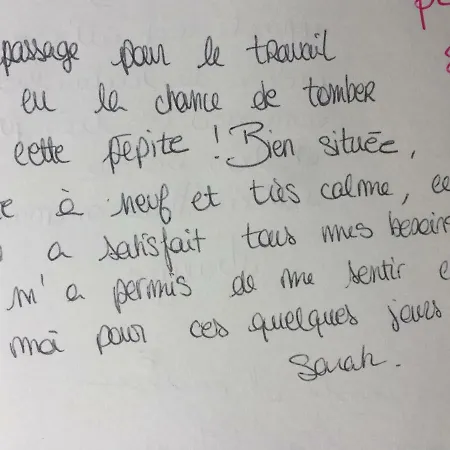 passage pour le travail
eu la chance de tomber
cette pépite ! Bien située,
à neuf et très calme, ce
a satisfait tous mes besoins
m'a permis de me sentir
moi pour ces quelques jours
Sarah.